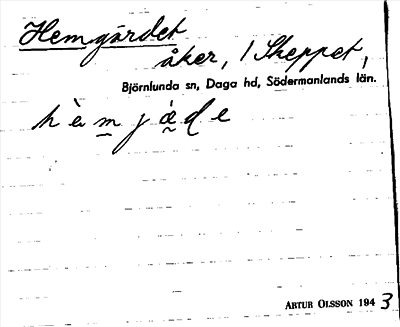 Hemgärdet
åker, 1 Skeppet,
Björnlunda sn, Daga hd, Södermanlands län.
hèmjáde
ARTUR OLSSON 1943